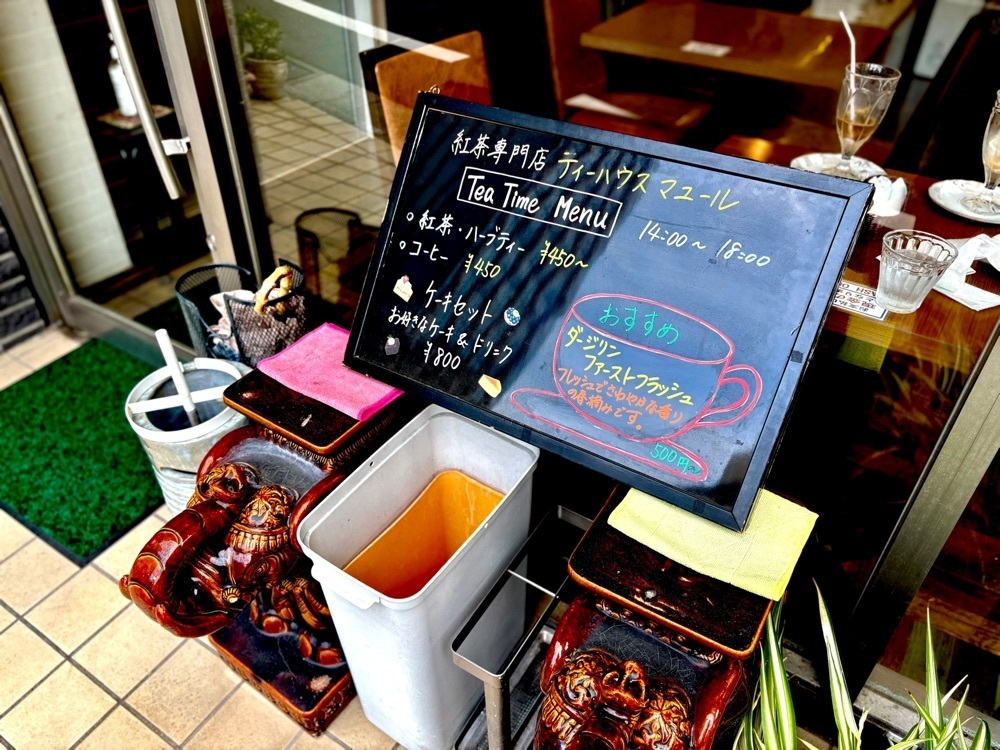 紅茶専門店 ティーハウス マユール
Tea Time Menu
14:00～ 18:00
○ 紅茶・ハーブティー ¥450～
○ コーヒー ¥450
ケーキセット
お好きなケーキ&ドリンク
¥800
おすすめ
ダージリン
ファーストフラッシュ
フレッシュでさわやかな香り
の春摘みです。
500円～